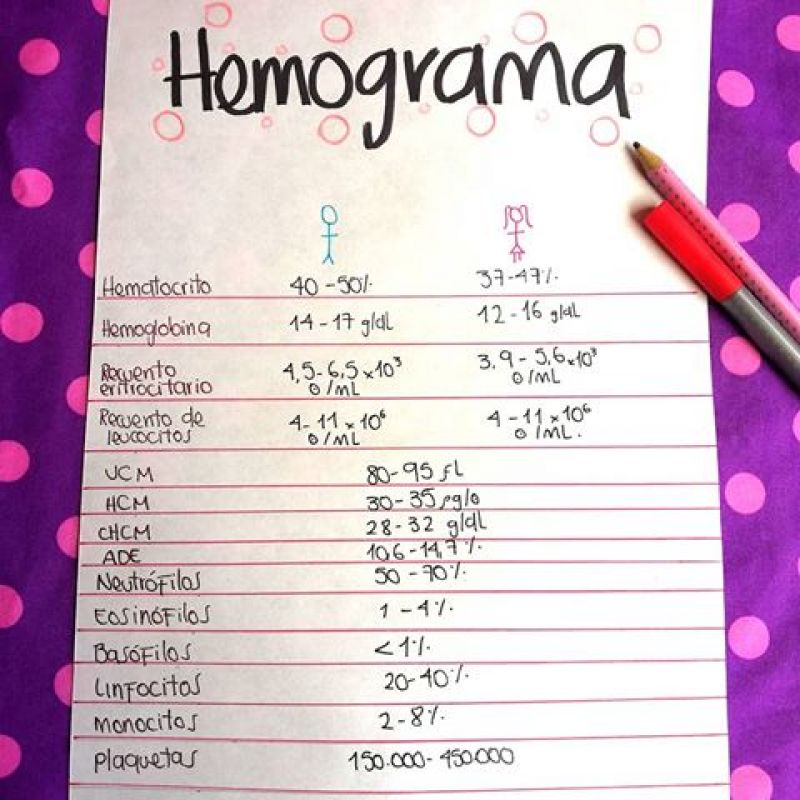 Hemograma
Hematocrito 40-50% 37-47%
Hemoglobina 14-17 g/dL 12-16 g/dL
Recuento 4,5-6,5 x 10³ 3,9-5,6 x 10³
eritrocitario 0/mL 0/mL
Recuento de 4-11 x 10⁶ 4-11 x 10⁶
leucocitos 0/mL 0/mL.
VCM 80-95 fl
HCM 30-35 pg/0
CHCM 28-32 g/dL
ADE 10,6-14,7%
Neutrófilos 50-70%
Eosinófilos 1-4%
Basófilos <1%
Linfocitos 20-40%
Monocitos 2-8%
Plaquetas 150.000-450.000